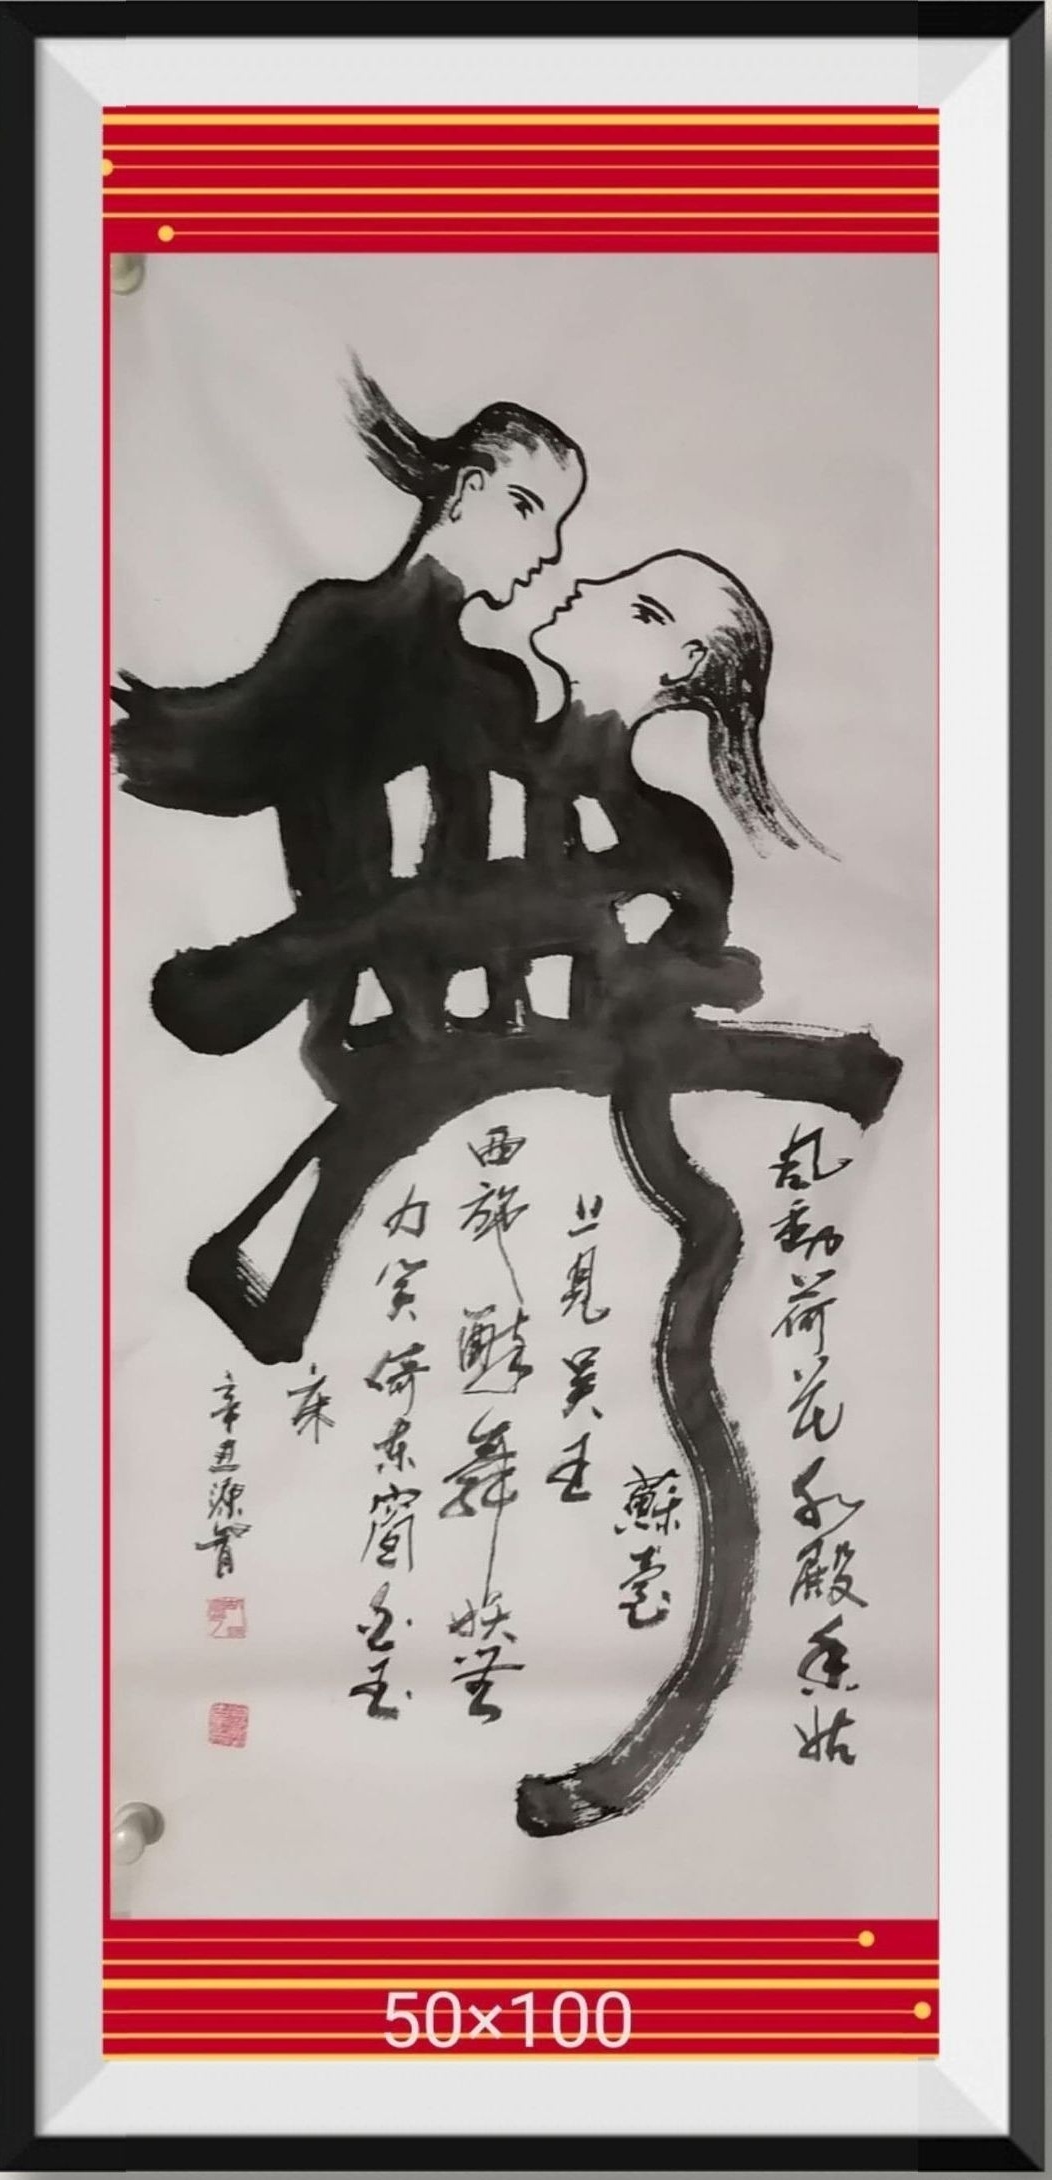 風動荷花水殿香姑
蘇臺
上見吴王
西施醉舞娇無
力笑倚东窗白玉
床
辛丑源
50×100